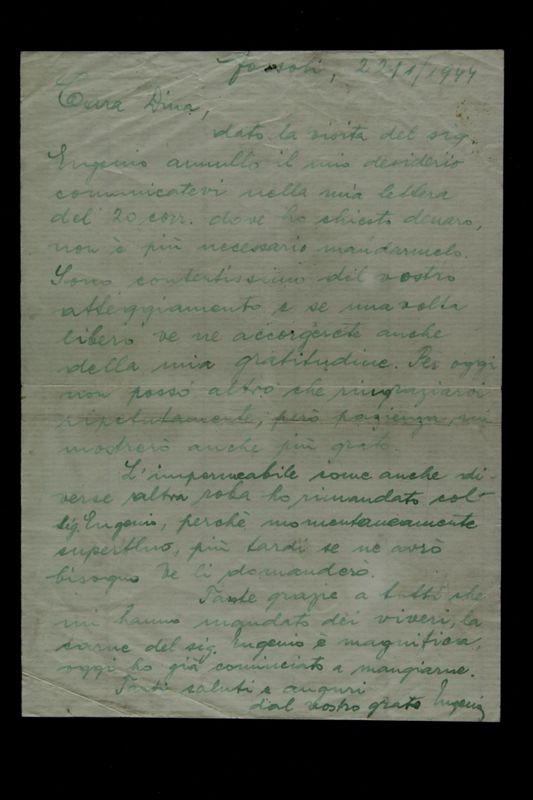 Fossoli, 22/1/1944
Cara Dina,
dato la visita del sig.
Eugenio annullo il mio desiderio
comunicatevi nella mia lettera
del 20 corr. dove ho chiesto denaro,
non è più necessario mandarmelo.
Sono contentissimo del vostro
atteggiamento e se una volta
libero ve ne accorgerete anche
della mia gratitudine. Per oggi
non posso altro che ringraziarvi
ripetutamente, però pazienza, mi
mostrerò anche più grato.
L'impermeabile come anche di-
verse altra roba ho rimandato col
sig. Eugenio, perchè momentaneamente
superfluo, più tardi se ne avrò
bisogno Ve li domanderò.
Tante grazie a tutti che
mi hanno mandato dei viveri, la
carne del sig. Eugenio è magnifica,
oggi ho già cominciato a mangiarne.
Tanti saluti e auguri
dal vostro grato